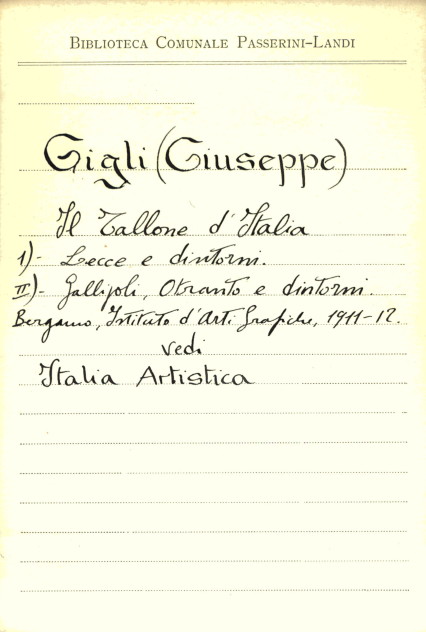 BIBLIOTECA COMUNALE PASSERINI-LANDI
Gigli (Giuseppe)
Il Tallone d'Italia
1)- Lecce e dintorni.
II)- Gallipoli, Otranto e dintorni.
Bergamo, Istituto d'Arti Grafiche, 1911-12.
vedi
Italia Artistica